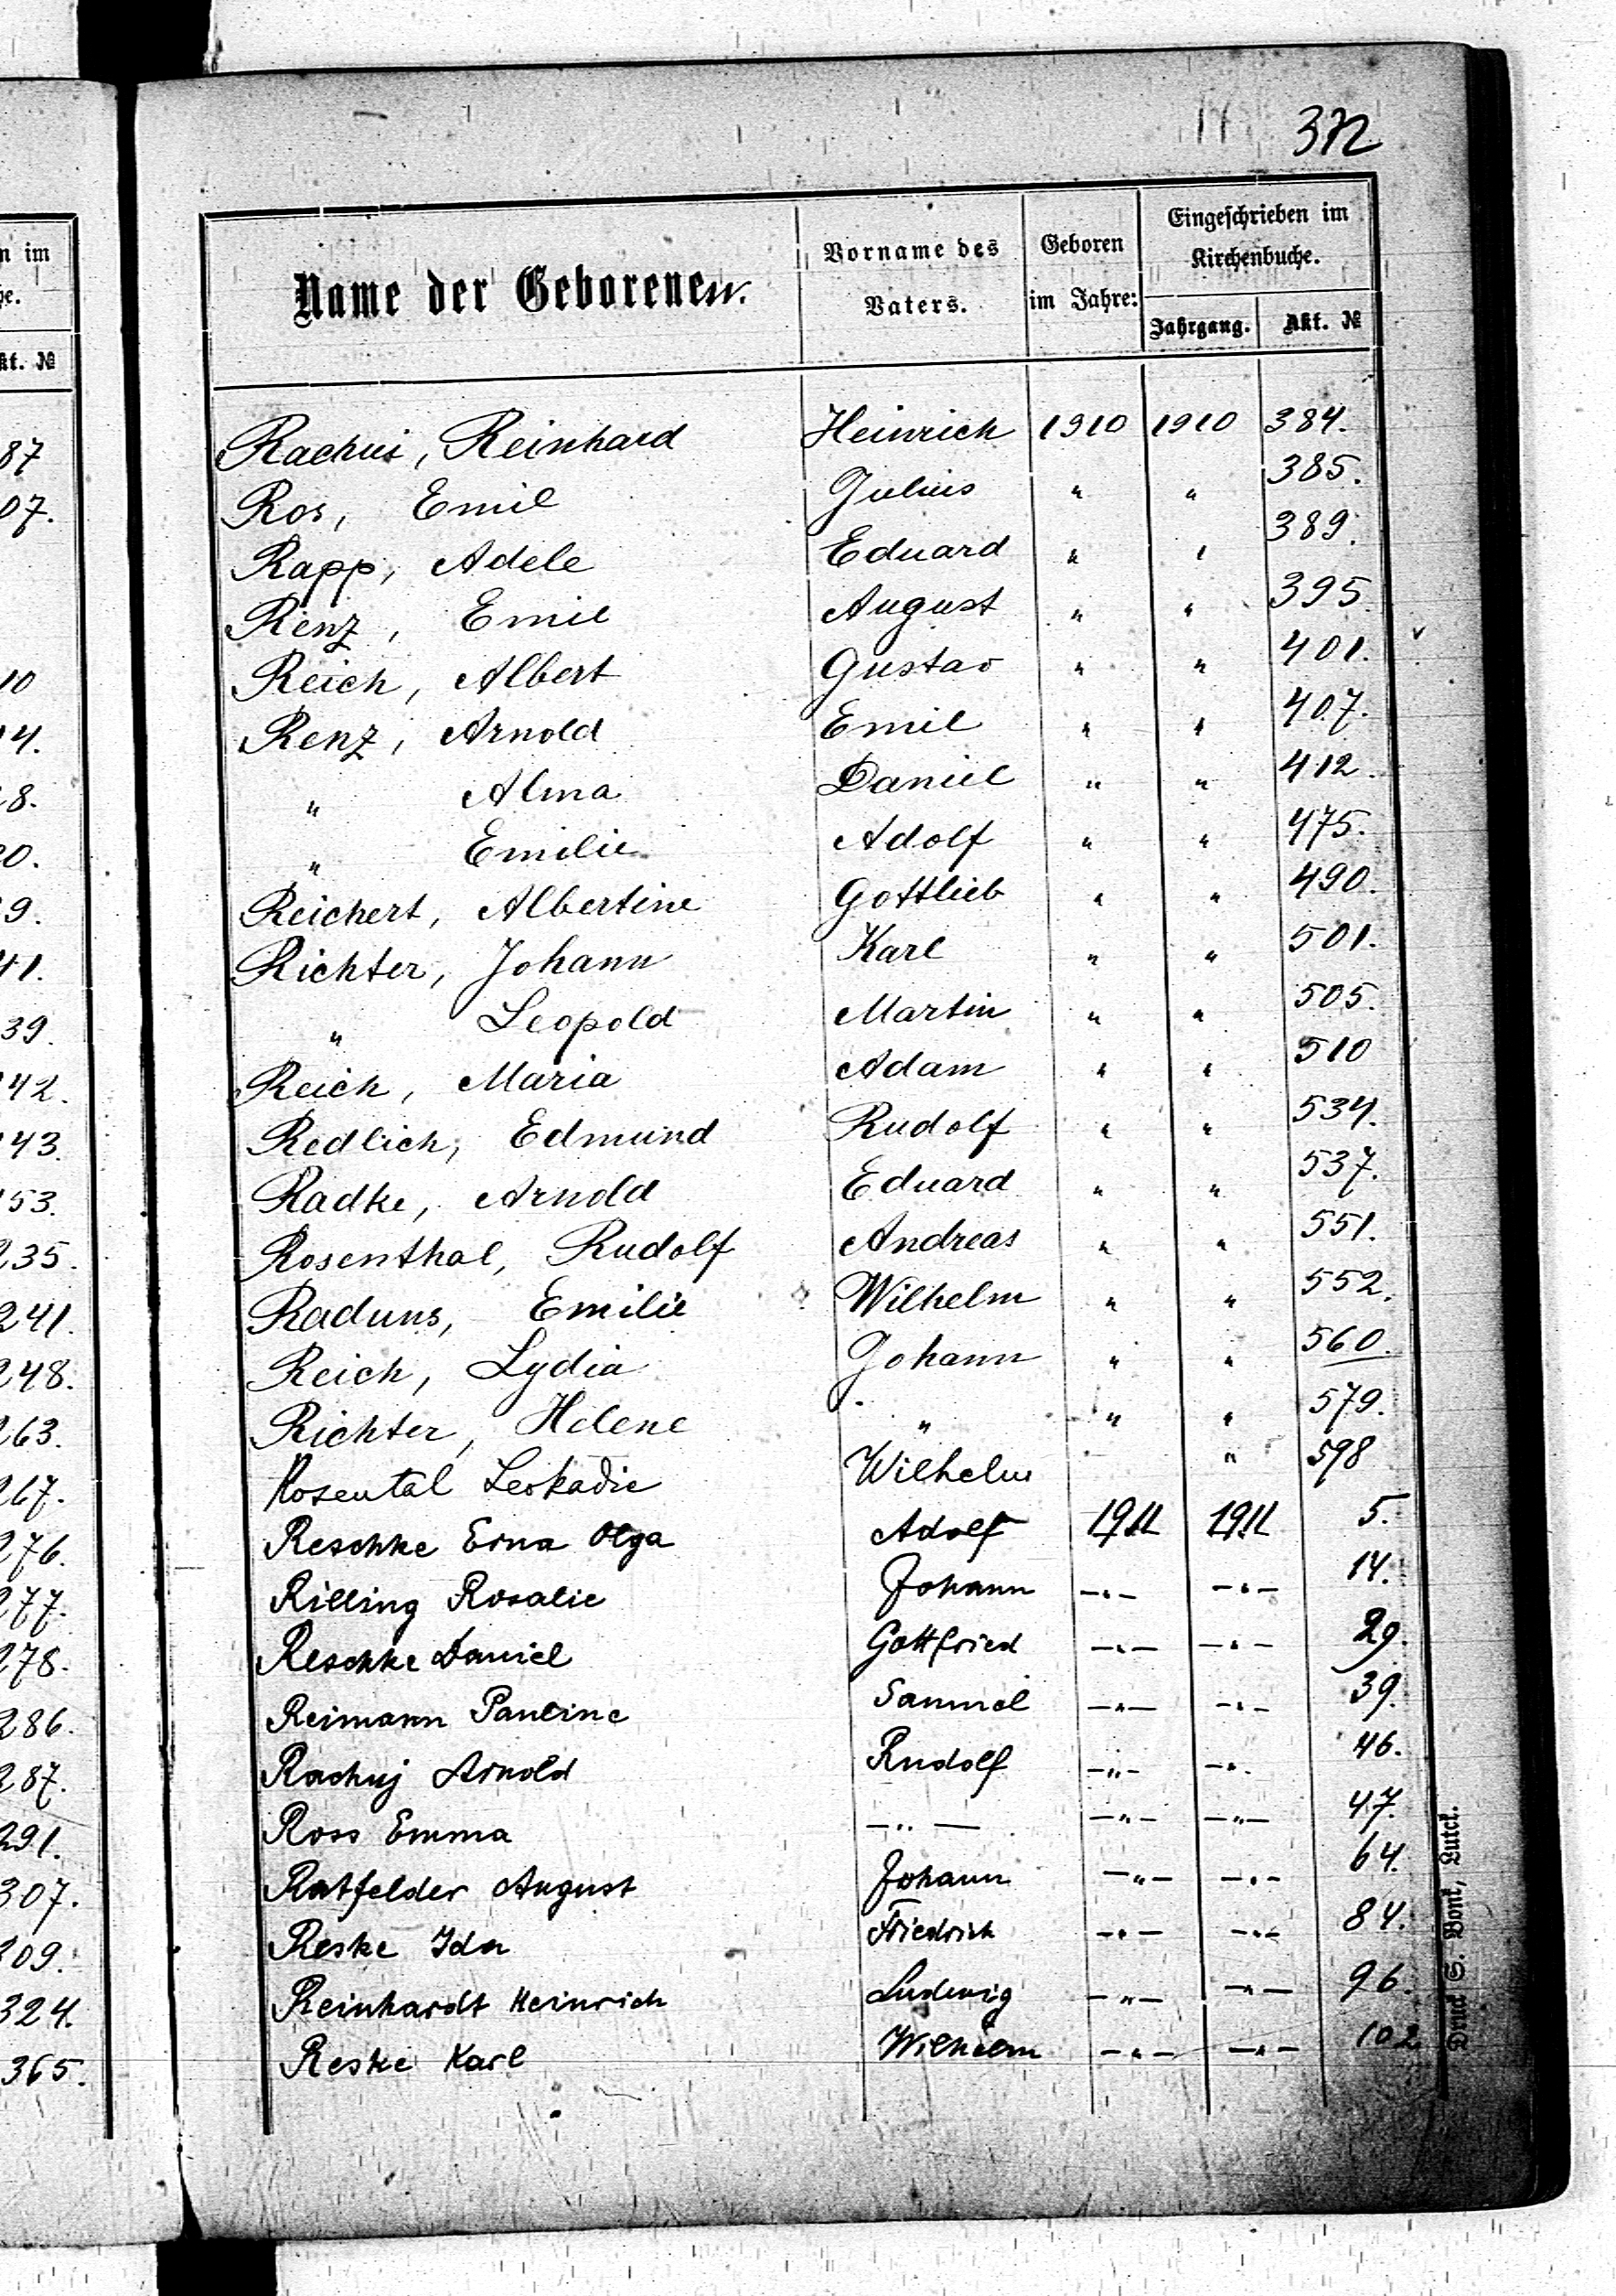 372
Name der Geborenen.
Vorname des Vaters.
Geboren im Jahre:
Eingeschrieben im Kirchenbuche.
Jahrgang. Akt. №
n im
he.
kt. №
Rachui, Reinhard Heinrich 1910 1910 384.
Ros, Emil Julius " " 385.
Rapp, Adele Eduard " " 389.
Renz, Emil August " " 395.
Reich, Albert Gustav " " 401.
Renz, Arnold Emil " " 407.
" Alma Daniel " " 412.
" Emilie Adolf " " 475.
Reichert, Albertine Gottlieb " " 490.
Richter, Johann Karl " " 501.
" Leopold Martin " " 505.
Reich, Maria Adam " " 510
Redlich, Edmund Rudolf " " 534.
Radke, Arnold Eduard " " 537.
Rosenthal, Rudolf Andreas " " 551.
Raduns, Emilie Wilhelm " " 552.
Reich, Lydia Johann " " 560.
Richter, Helene " " " 579.
Rosental Leokadie Wilhelm " 598
Reschke Erna Olga Adolf 1911 1911 5.
Rilling Rosalie Johann —"— —"— 14.
Reschke Daniel Gottfried —"— —"— 29.
Reimann Pauline Samuel —"— —"— 39.
Rachuj Arnold Rudolf —"— —"— 46.
Ross Emma —"— —"— —"— 47.
Ratfelder August Johann —"— —"— 64.
Reske Ida Friedrich —"— —"— 84.
Reinhardt Heinrich Ludwig —"— —"— 96.
Reske Karl Wilhelm —"— —"— 102
87
07.
10
14.
8.
0.
9.
41.
39.
42.
43.
153.
235.
241.
248.
263.
267.
276.
277.
278.
286.
287.
291.
307.
309.
324.
365.
Druck S. Bonk, Lutck.